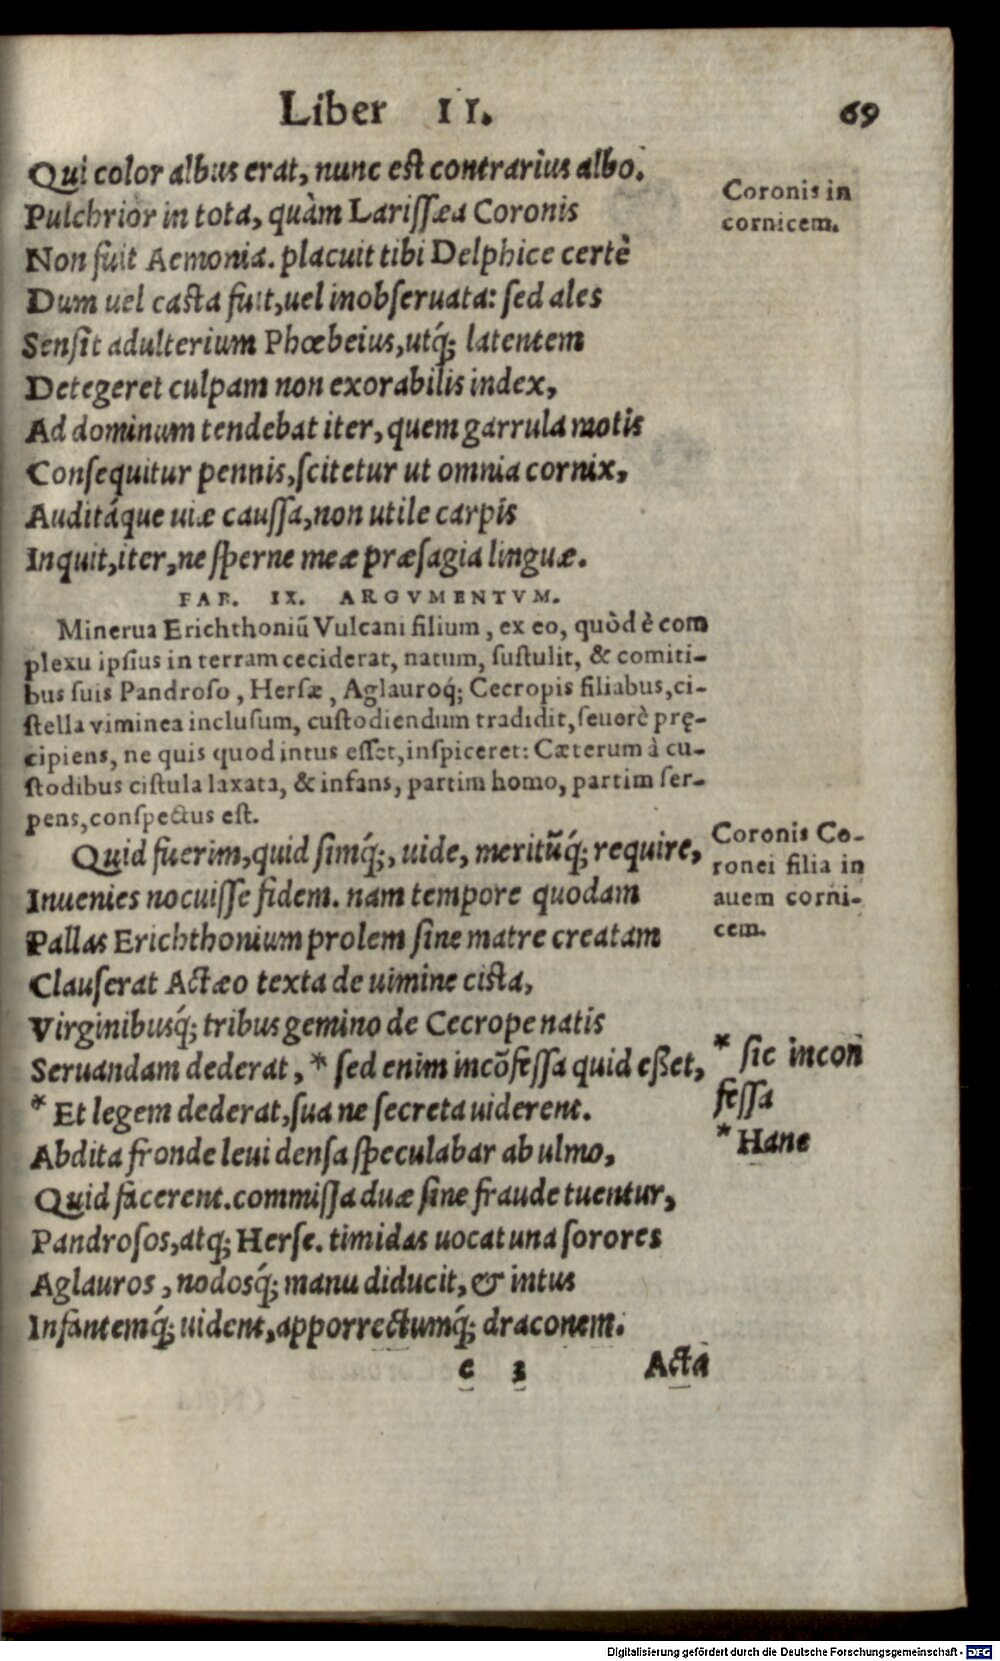 Liber II. 69
Qui color albus erat, nunc est contrarius albo.
Coronis in
cornicem.
Pulchrior in tota, quàm Larissæa Coronis
Non fuit Aemonia. placuit tibi Delphice certè
Dum uel casta fuit, uel inobseruata: sed ales
Sensit adulterium Phœbeius, utq́; latentem
Detegeret culpam non exorabilis index,
Ad dominum tendebat iter, quem garrula motis
Consequitur pennis, scitetur ut omnia cornix,
Auditáque uiæ caussa, non utile carpis
Inquit, iter, ne sperne meæ præsagia linguæ.
FAB. IX. ARGVMENTVM.
Minerua Erichthoniū Vulcani filium, ex eo, quòd è com
plexu ipsius in terram ceciderat, natum, sustulit, & comiti-
bus suis Pandroso, Hersæ, Aglauroq́; Cecropis filiabus, ci-
stella viminea inclusum, custodiendum tradidit, seuerè prę-
cipiens, ne quis quod intus esset, inspiceret: Cæterum à cu-
stodibus cistula laxata, & infans, partim homo, partim ser-
pens, conspectus est.
Quid fuerim, quid simq́;, uide, meritūq́; require,
Coronis Co-
ronei filia in
auem corni-
cem.
Inuenies nocuisse fidem. nam tempore quodam
Pallas Erichthonium prolem sine matre creatam
Clauserat Actæo texta de uimine cista,
Virginibusq́; tribus gemino de Cecrope natis
Seruandam dederat, * sed enim incōfessa quid eßet,
* sic incon
fessa
* Et legem dederat, sua ne secreta uiderent.
* Hanc
Abdita fronde leui densa speculabar ab ulmo,
Quid facerent. commissa duæ sine fraude tuentur,
Pandrosos, atq; Herse. timidas uocat una sorores
Aglauros, nodosq́; manu diducit, & intus
Infantemq́; uident, apporrectumq́; draconem.
e 3 Acta
Digitalisierung gefördert durch die Deutsche Forschungsgemeinschaft - DFG